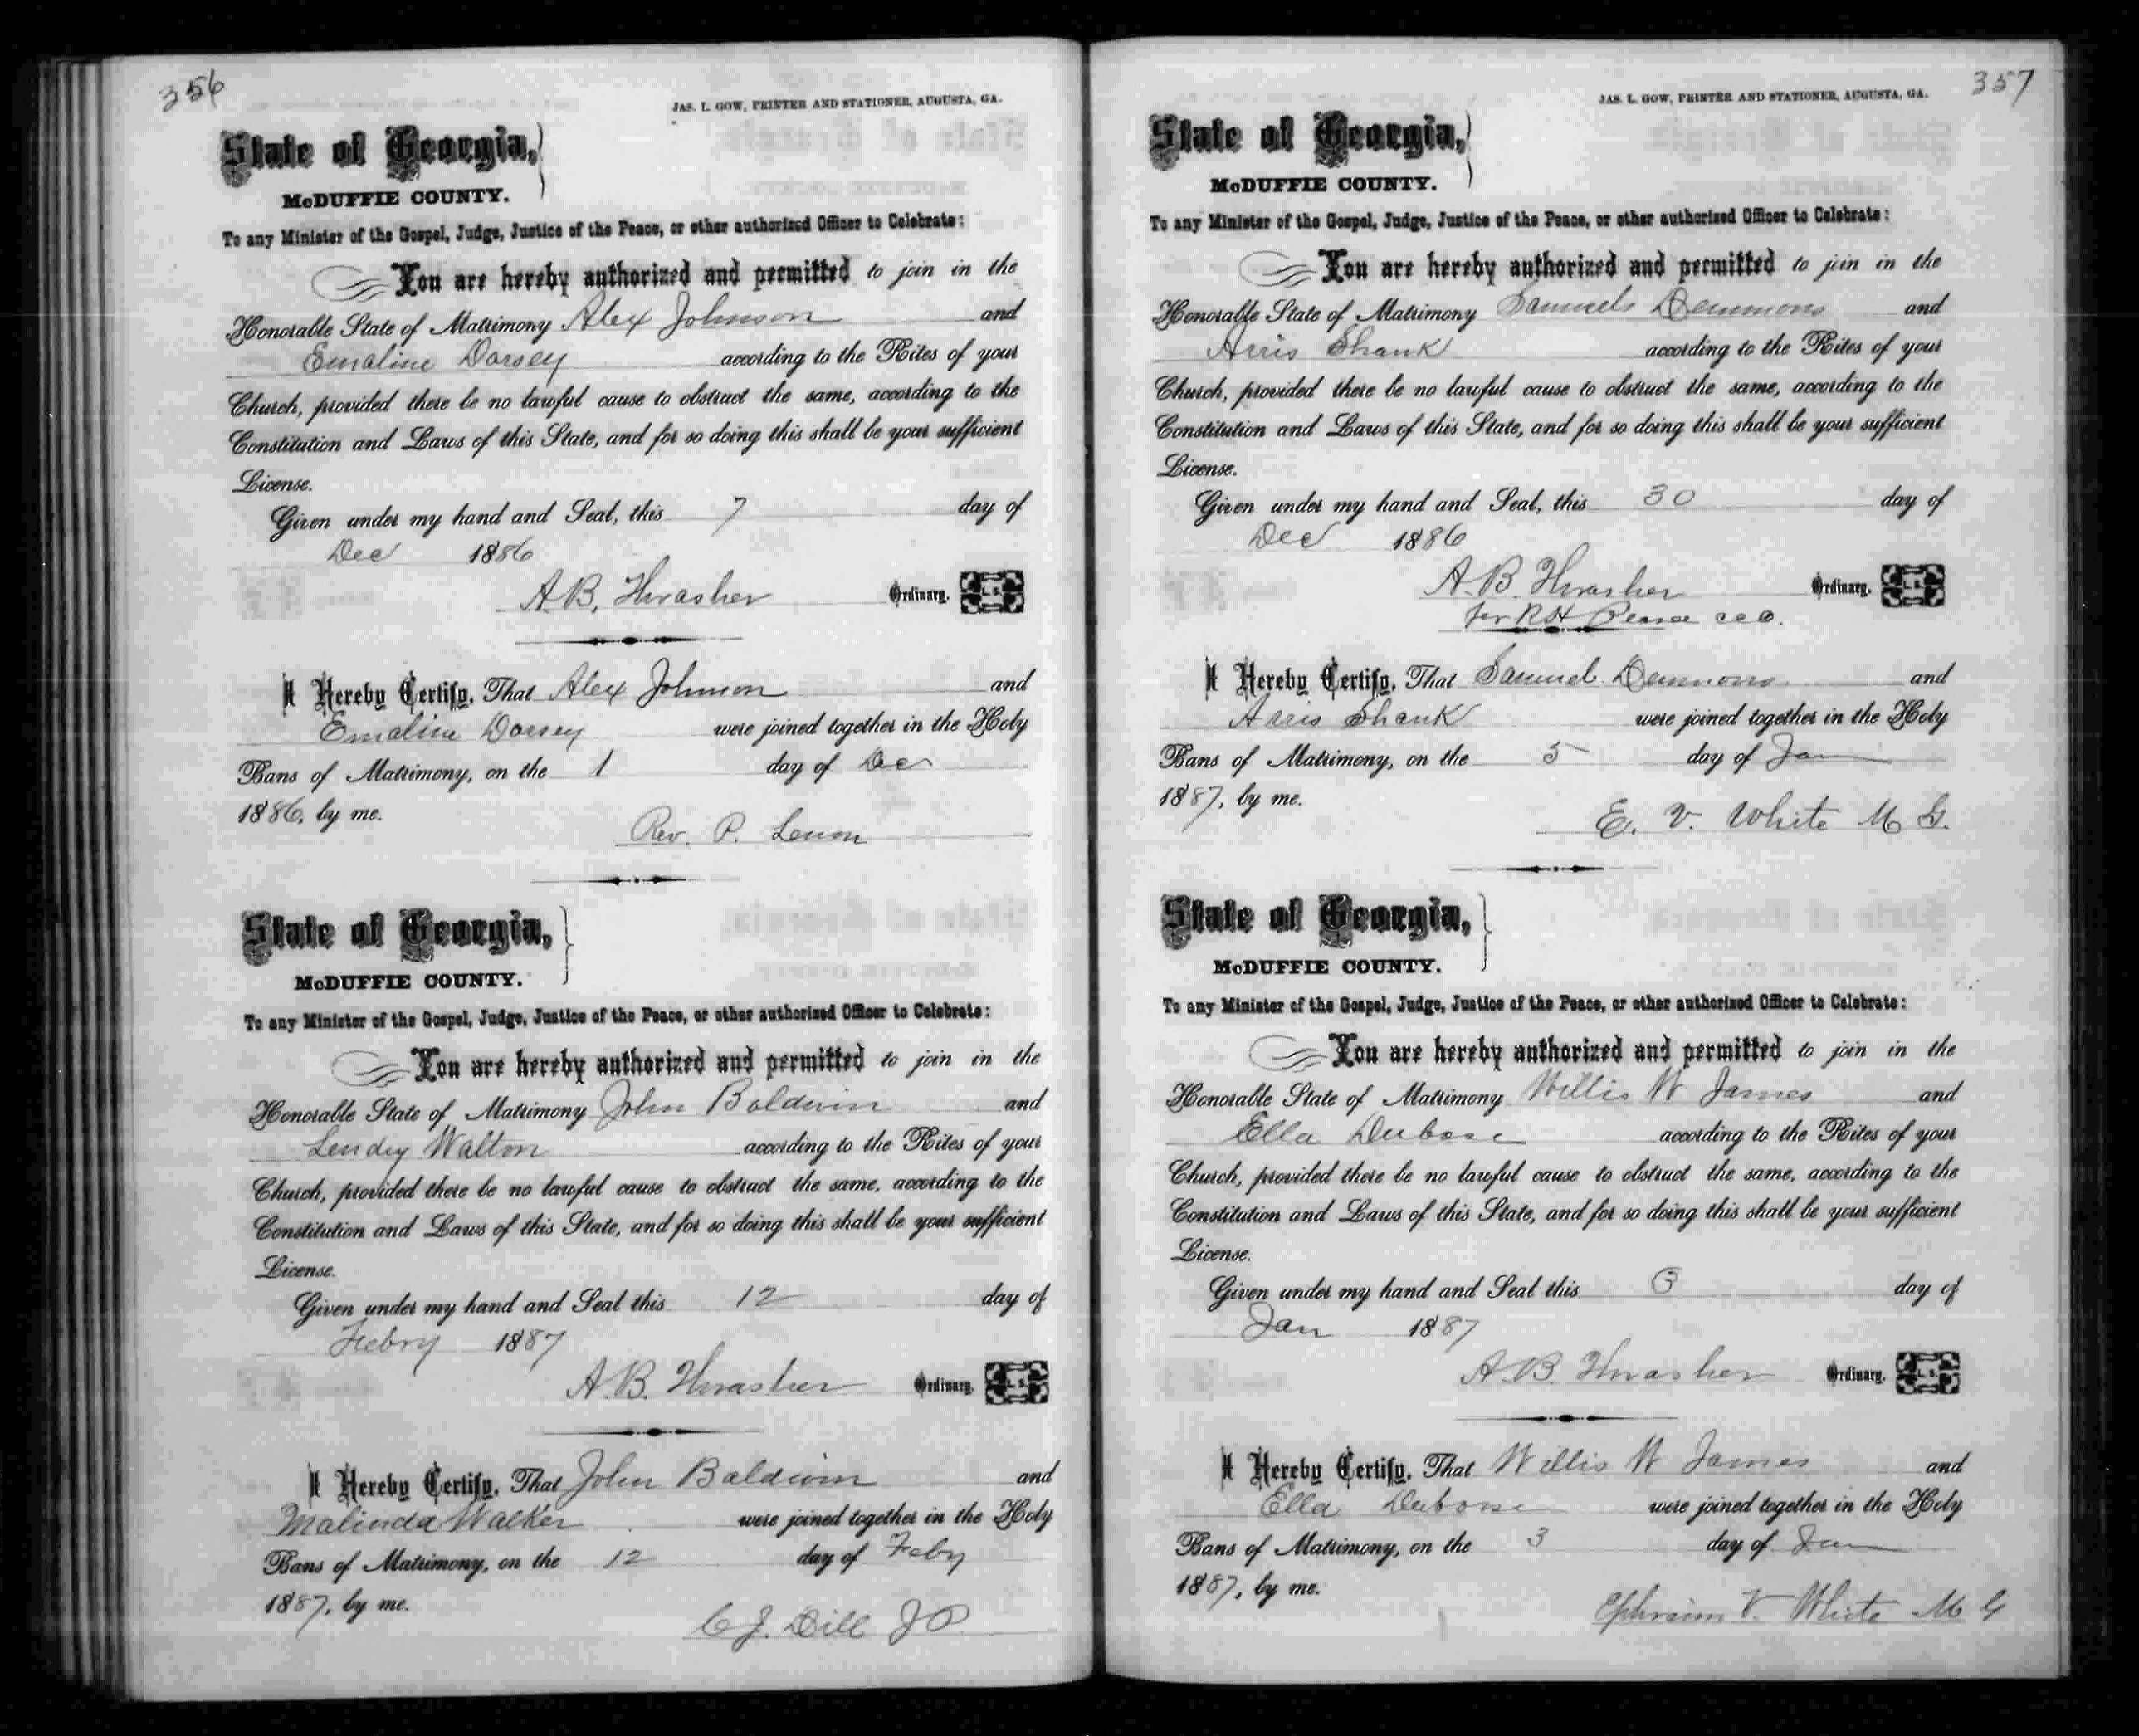 356
JAS. L. GOW, PRINTER AND STATIONER, AUGUSTA, GA.
State of Georgia,
McDUFFIE COUNTY.
To any Minister of the Gospel, Judge, Justice of the Peace, or other authorized Officer to Celebrate:
You are hereby authorized and permitted to join in the
Honorable State of Matrimony Alex Johnson and
Emaline Dorsey according to the Rites of your
Church, provided there be no lawful cause to obstruct the same, according to the
Constitution and Laws of this State, and for so doing this shall be your sufficient
License.
Given under my hand and Seal, this 7 day of
Dec 1886
A.B. Thrasher Ordinary. L.S.
I Hereby Certify, That Alex Johnson and
Emaline Dorsey were joined together in the Holy
Bans of Matrimony, on the 1 day of Dec
1886, by me.
Rev. P. Lenon
State of Georgia,
McDUFFIE COUNTY.
To any Minister of the Gospel, Judge, Justice of the Peace, or other authorized Officer to Celebrate:
You are hereby authorized and permitted to join in the
Honorable State of Matrimony John Baldwin and
Lendy Walton according to the Rites of your
Church, provided there be no lawful cause to obstruct the same, according to the
Constitution and Laws of this State, and for so doing this shall be your sufficient
License.
Given under my hand and Seal this 12 day of
Febry 1887
A.B. Thrasher Ordinary. L.S.
I Hereby Certify, That John Baldwin and
Malinda Walker were joined together in the Holy
Bans of Matrimony, on the 12 day of Feby
1887, by me.
C J. Dill J P
357
JAS. L. GOW, PRINTER AND STATIONER, AUGUSTA, GA.
State of Georgia,
McDUFFIE COUNTY.
To any Minister of the Gospel, Judge, Justice of the Peace, or other authorized Officer to Celebrate:
You are hereby authorized and permitted to join in the
Honorable State of Matrimony Samuels Demmons and
Arris Shank according to the Rites of your
Church, provided there be no lawful cause to obstruct the same, according to the
Constitution and Laws of this State, and for so doing this shall be your sufficient
License.
Given under my hand and Seal, this 30 day of
Dec 1886
A.B. Thrasher Ordinary. L.S.
per R H Pearce
I Hereby Certify, That Samuel Demmons and
Arris Shank were joined together in the Holy
Bans of Matrimony, on the 5 day of Jan
1887, by me.
E. V. White M G.
State of Georgia,
McDUFFIE COUNTY.
To any Minister of the Gospel, Judge, Justice of the Peace, or other authorized Officer to Celebrate:
You are hereby authorized and permitted to join in the
Honorable State of Matrimony Willis W James and
Ella Dubose according to the Rites of your
Church, provided there be no lawful cause to obstruct the same, according to the
Constitution and Laws of this State, and for so doing this shall be your sufficient
License.
Given under my hand and Seal this 3 day of
Jan 1887
A.B. Thrasher Ordinary. L.S.
I Hereby Certify, That Willis W James and
Ella Dubose were joined together in the Holy
Bans of Matrimony, on the 3 day of Jan
1887, by me.
Ephraim V. White M G